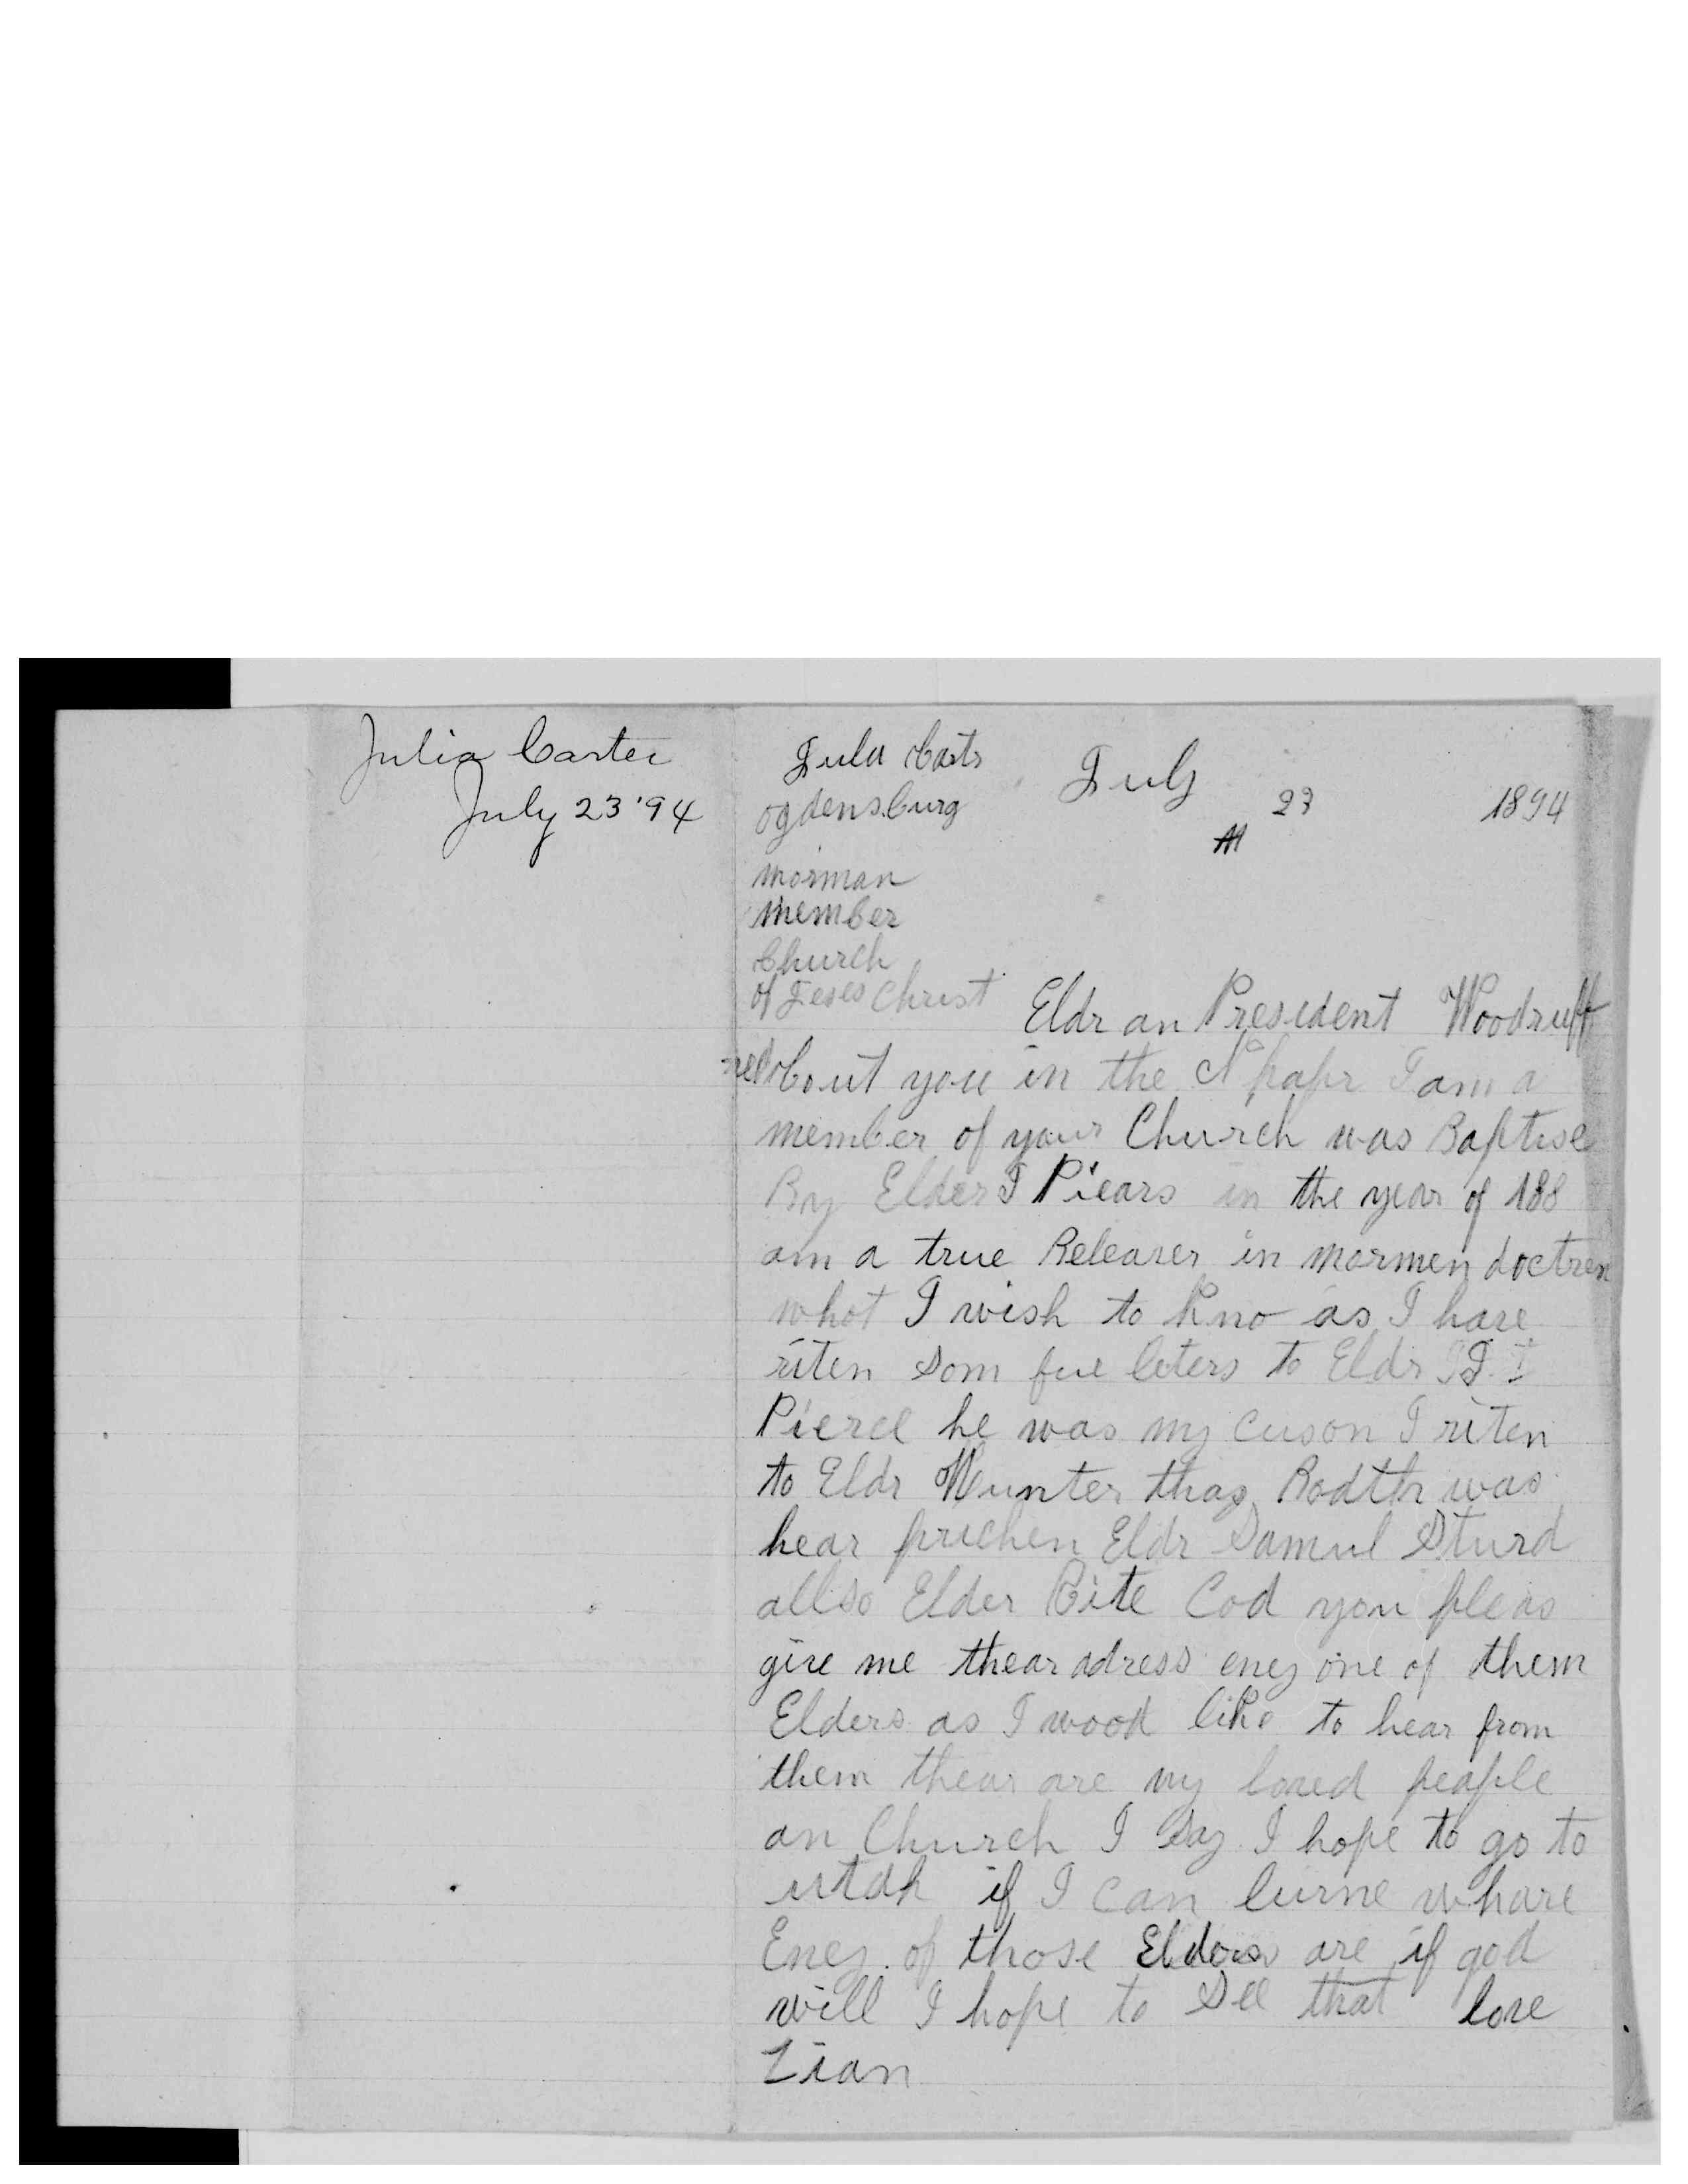 Julia Carter
July 23 '94
Jula Carts
ogdensburg
July 23 1894
morman
member
Church
of Jeses Christ
Eldr an President Woodruff
bout you in the N papr I am a
member of your Church was Baptise
By Elder I Piears in the year of 188
am a true Belever in mormen doctren
whot I wish to kno as I have
riten som fue leters to Eldr
Pierce he was my cuson I riten
to Eldr Hunter thay Bodth was
hear prichen Eldr Samul Sturd
allso Elder Cite Cod you pleas
give me thear adress eney one of them
Elders as I wood like to hear from
them thear are my loved people
an Church I Say I hope to go to
utah if I can lurne whare
Eney of those Elders are if god
will I hope to See that love
Zian